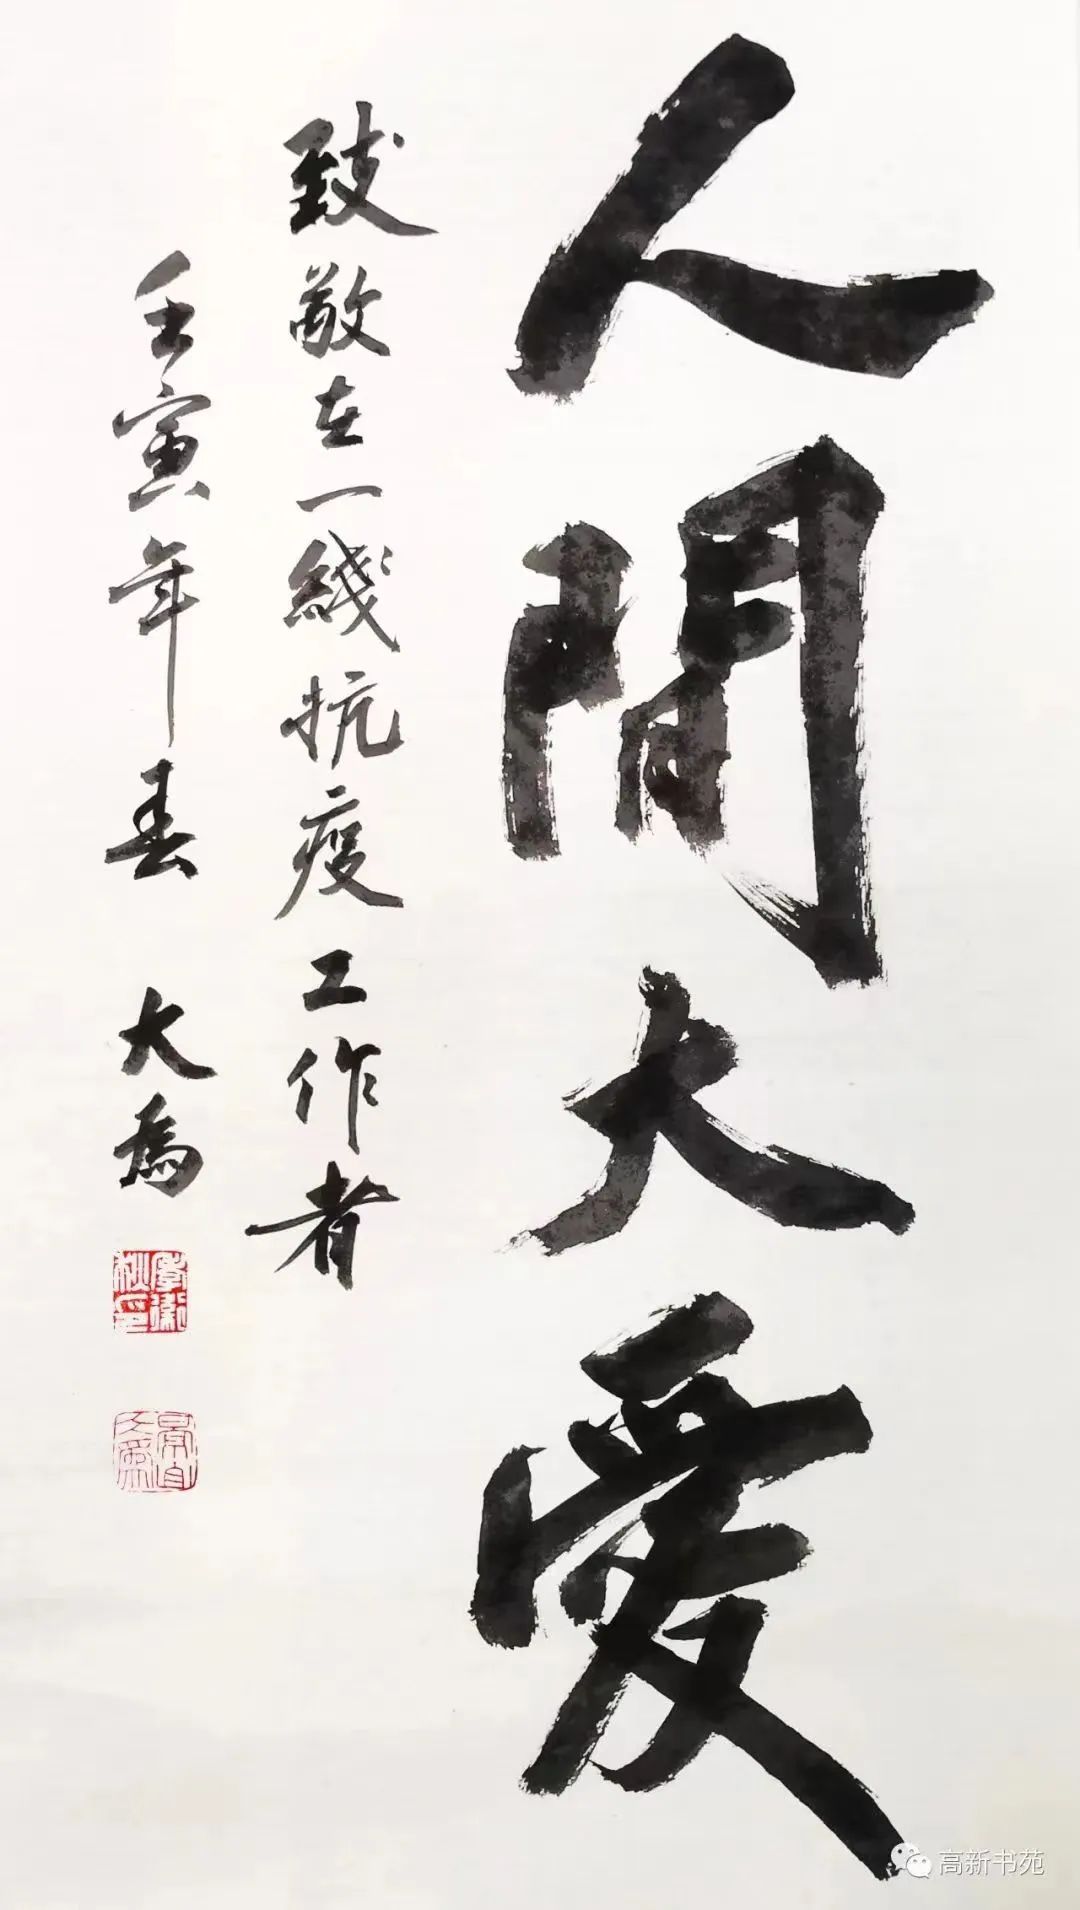 人間大愛
致敬在一綫抗疫工作者
壬寅年春 大為
高新书苑